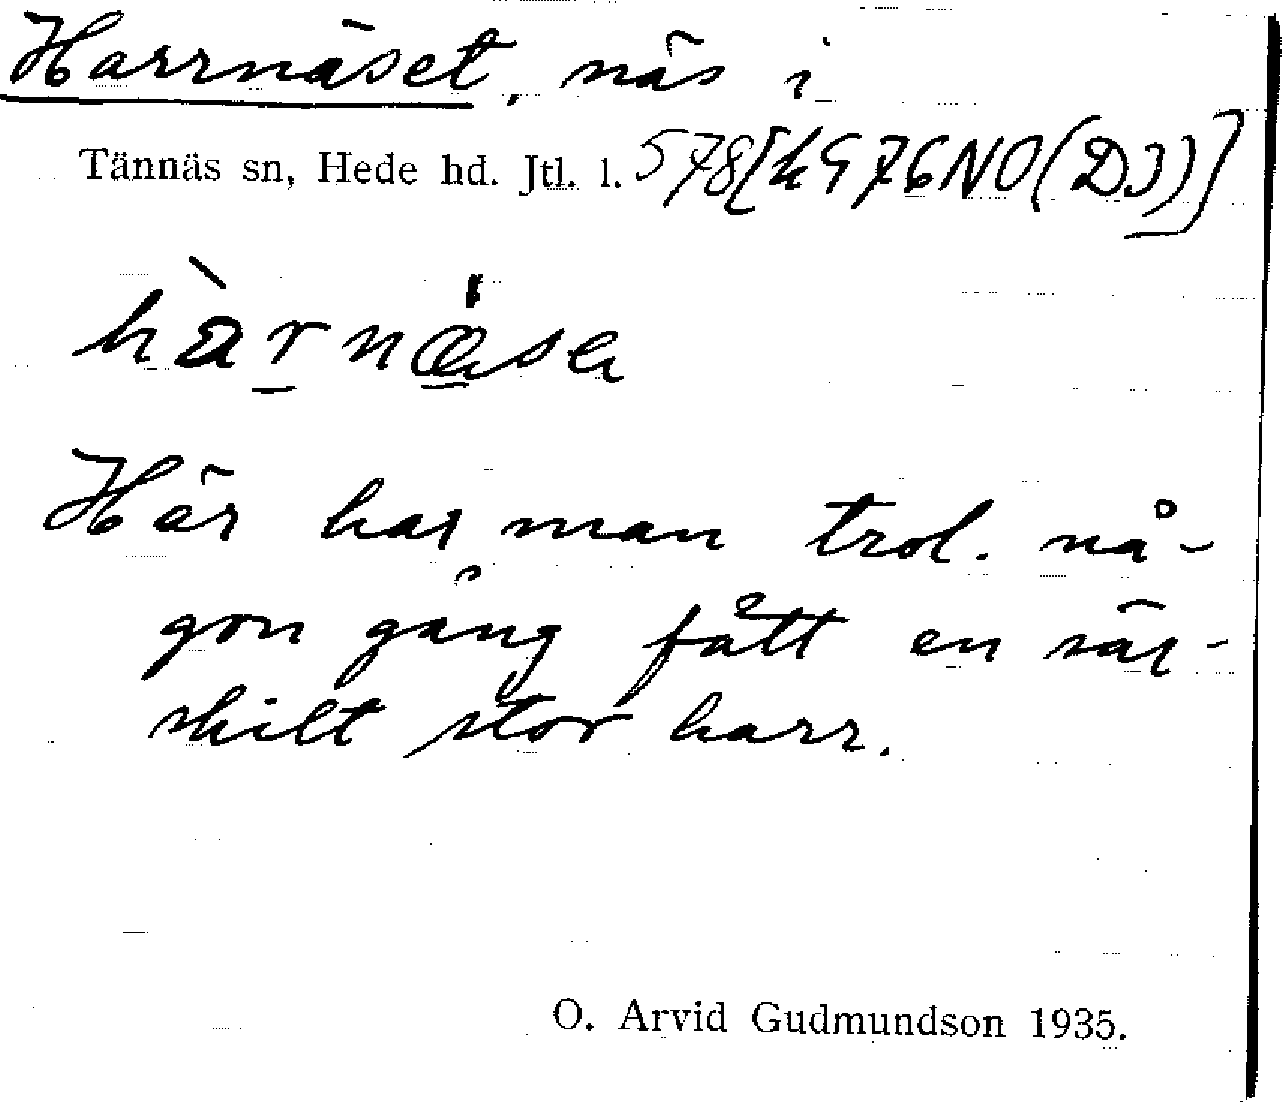 Harrnäset, näs i
Tännäs sn, Hede hd. Jtl. l. 578[h976NO(DJ)]
hàrnæ̀sa
Här har man trol. nå-
gon gång fått en sär-
skilt stor harr.
O. Arvid Gudmundson 1935.